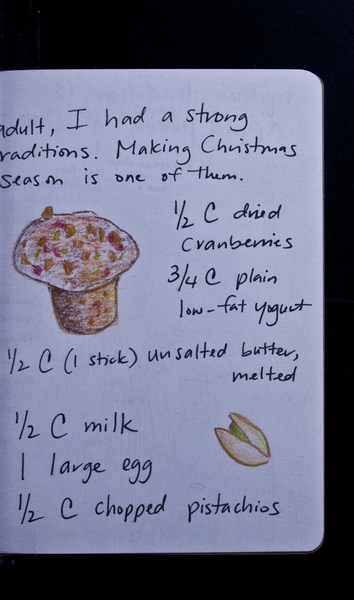 adult, I had a strong
raditions. Making Christmas
season is one of them.
1/2 C dried
cranberries
3/4 C plain
low-fat yogurt
1/2 C (1 stick) unsalted butter,
melted
1/2 C milk
1 large egg
1/2 C chopped pistachios